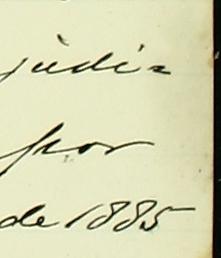 judi=
por
de 1885